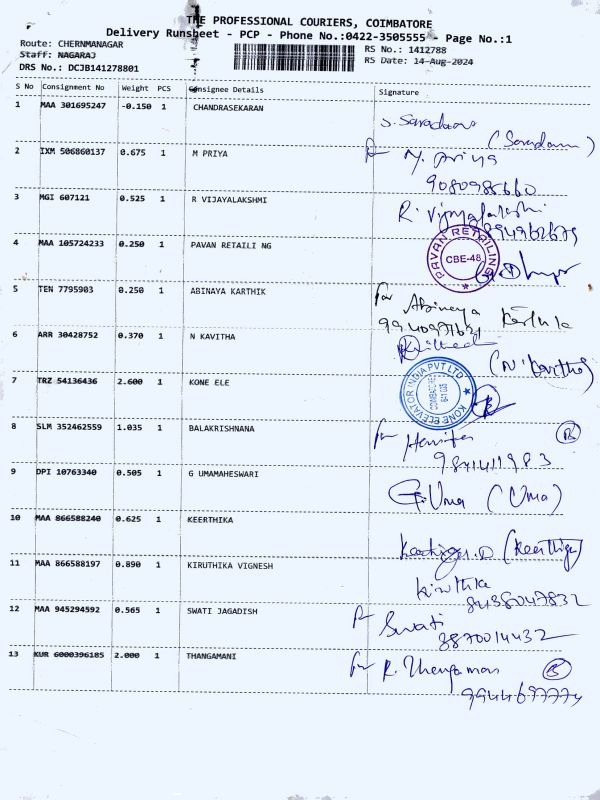 THE PROFESSIONAL COURIERS, COIMBATORE
Delivery Runsheet - PCP - Phone No.:0422-3505555 - Page No.:1
Route: CHERNMANAGAR
RS No.: 1412788
Staff: NAGARAJ
RS Date: 14-Aug-2024
DRS No.: DCJB141278801
S No Consignment No Weight PCS Consignee Details Signature
1 MAA 301695247 -0.150 1 CHANDRASEKARAN
S. Saradam
(Saradam)
2 IXM 506860137 0.675 1 M PRIYA
for M. Priya
9080985660
3 MGI 607121 0.525 1 R VIJAYALAKSHMI
R. Vijayalakshmi
4 MAA 105724233 0.250 1 PAVAN RETAILI NG
PAVAN RETAILING
CBE-48
5 TEN 7795903 0.250 1 ABINAYA KARTHIK
for Abinaya
6 ARR 30428752 0.370 1 N KAVITHA
(N. Kavitha)
7 TRZ 54136436 2.600 1 KONE ELE
KONE ELEVATOR INDIA PVT LTD
COIMBATORE
8 SLM 352462559 1.035 1 BALAKRISHNANA
for
9841411983
9 DPI 10763340 0.505 1 G UMAMAHESWARI
G. Uma (Uma)
10 MAA 866588240 0.625 1 KEERTHIKA
(Keerthiga)
11 MAA 866588197 0.890 1 KIRUTHIKA VIGNESH
Kiruthika
8438047832
12 MAA 945294592 0.565 1 SWATI JAGADISH
for Swati
8870014432
13 KUR 6000396185 2.000 1 THANGAMANI
for R. Thangamani